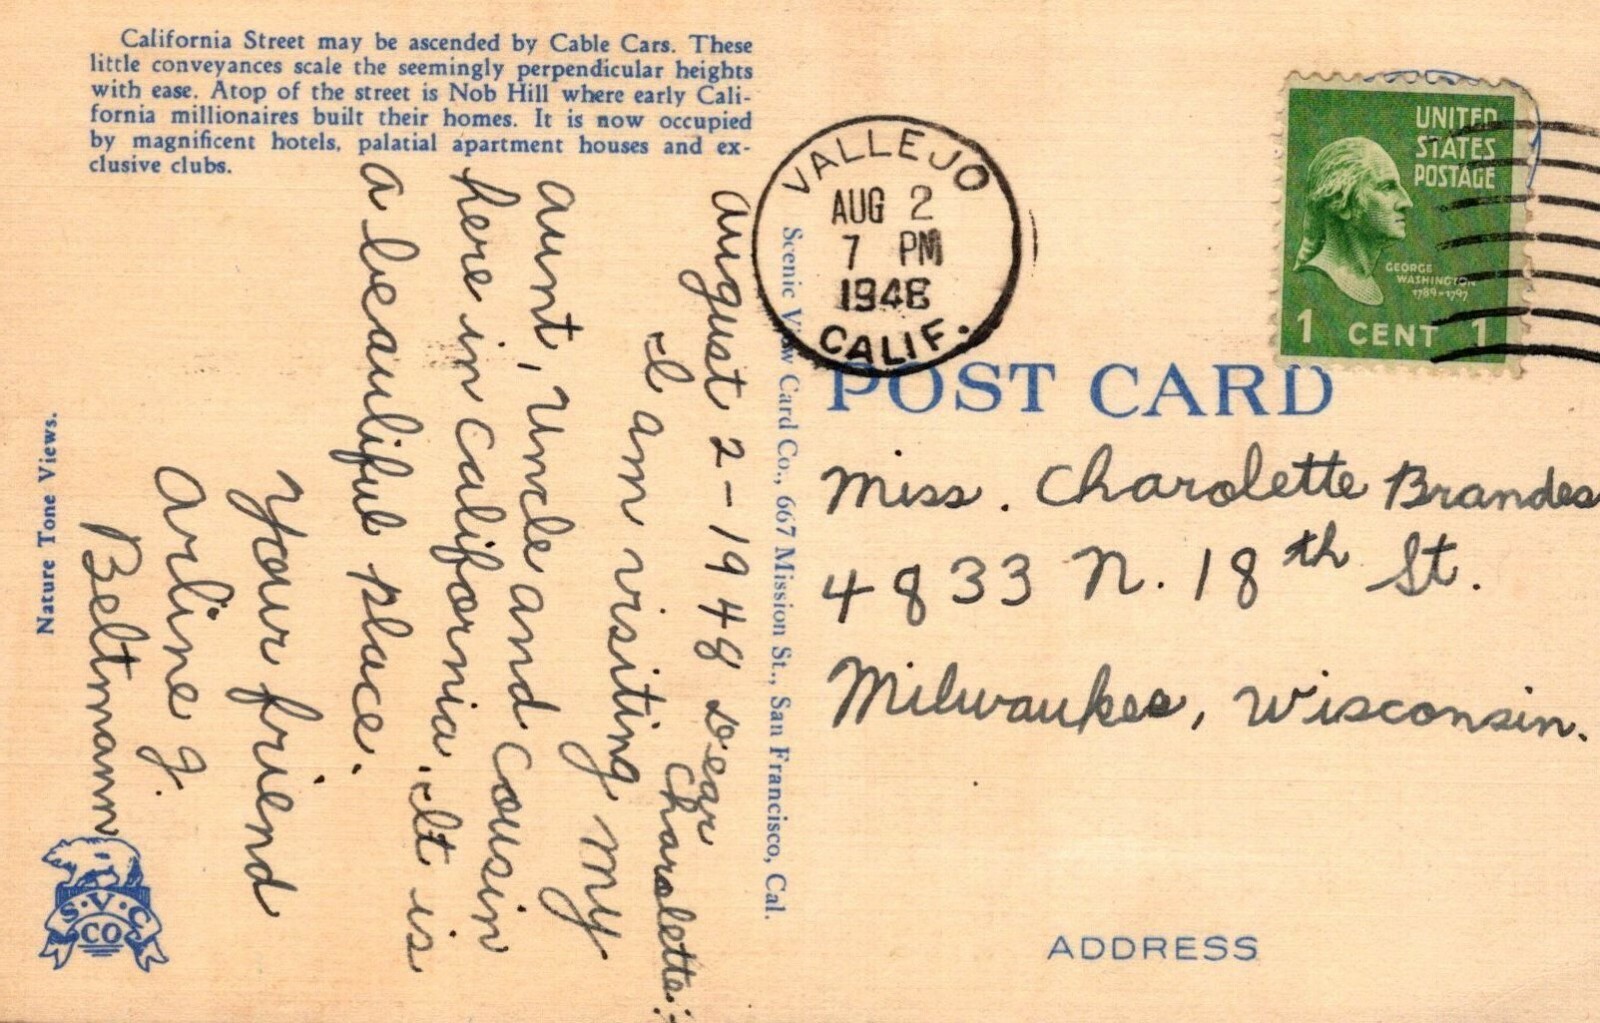 California Street may be ascended by Cable Cars. These
little conveyances scale the seemingly perpendicular heights
with ease. Atop of the street is Nob Hill where early Cali-
fornia millionaires built their homes. It is now occupied
by magnificent hotels, palatial apartment houses and ex-
clusive clubs.
August 2-1948 Dear
Charolette:
I am visiting my
aunt, uncle and cousin
here in California. It is
a beautiful place.
Your friend
Arline J.
Beltmann
Nature Tone Views.
S.V.C
CO
Scenic View Card Co., 667 Mission St., San Francisco, Cal.
VALLEJO
AUG 2
7 PM
1948
CALIF.
UNITED
STATES
POSTAGE
GEORGE
WASHINGTON
1789-1797
1 CENT 1
POST CARD
Miss. Charolette Brandes
4833 N. 18th St.
Milwaukee, Wisconsin.
ADDRESS